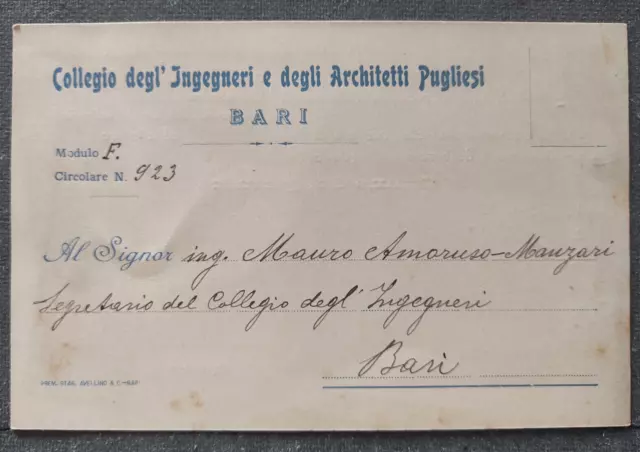 Collegio degl' Ingegneri e degli Architetti Pugliesi
BARI
Modulo F.
Circolare N. 923
Al Signor ing. Mauro Amoruso-Manzari
Segretario del Collegio degl' Ingegneri
Bari
AVELLINO & C.-BARI